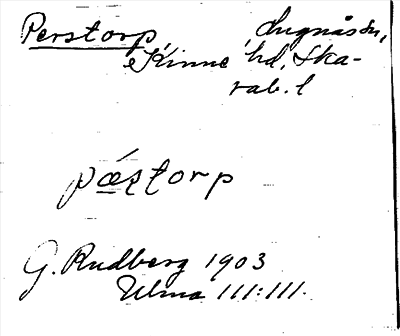 Perstorp, Lugnås sn,
Kinne hd, Ska-
rab. l
pæ̣ʂʈorp
G. Rudberg 1903
Ulma 111:111.